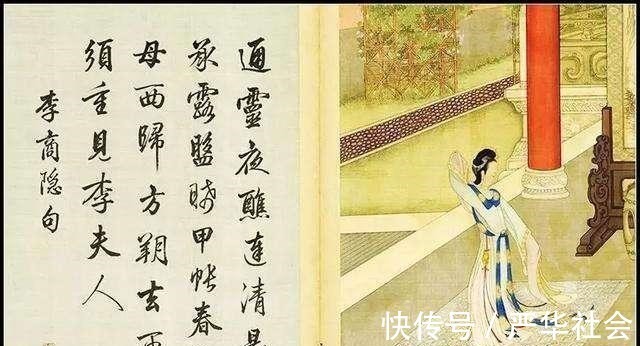 通靈夜醮達清
承露盤晞甲帐春
母西歸方朔去
須重見李夫人
李商隐句
快传号 / 严华社会